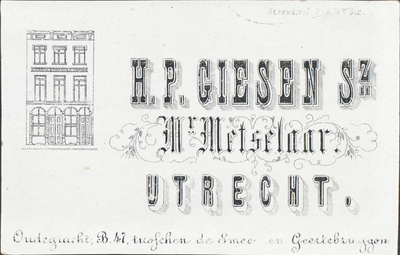 H. P. GIESEN Sz
Mr. Metselaar.
UTRECHT.
Oudegracht, B. 47, tusschen de Smee- en Geertebruggen